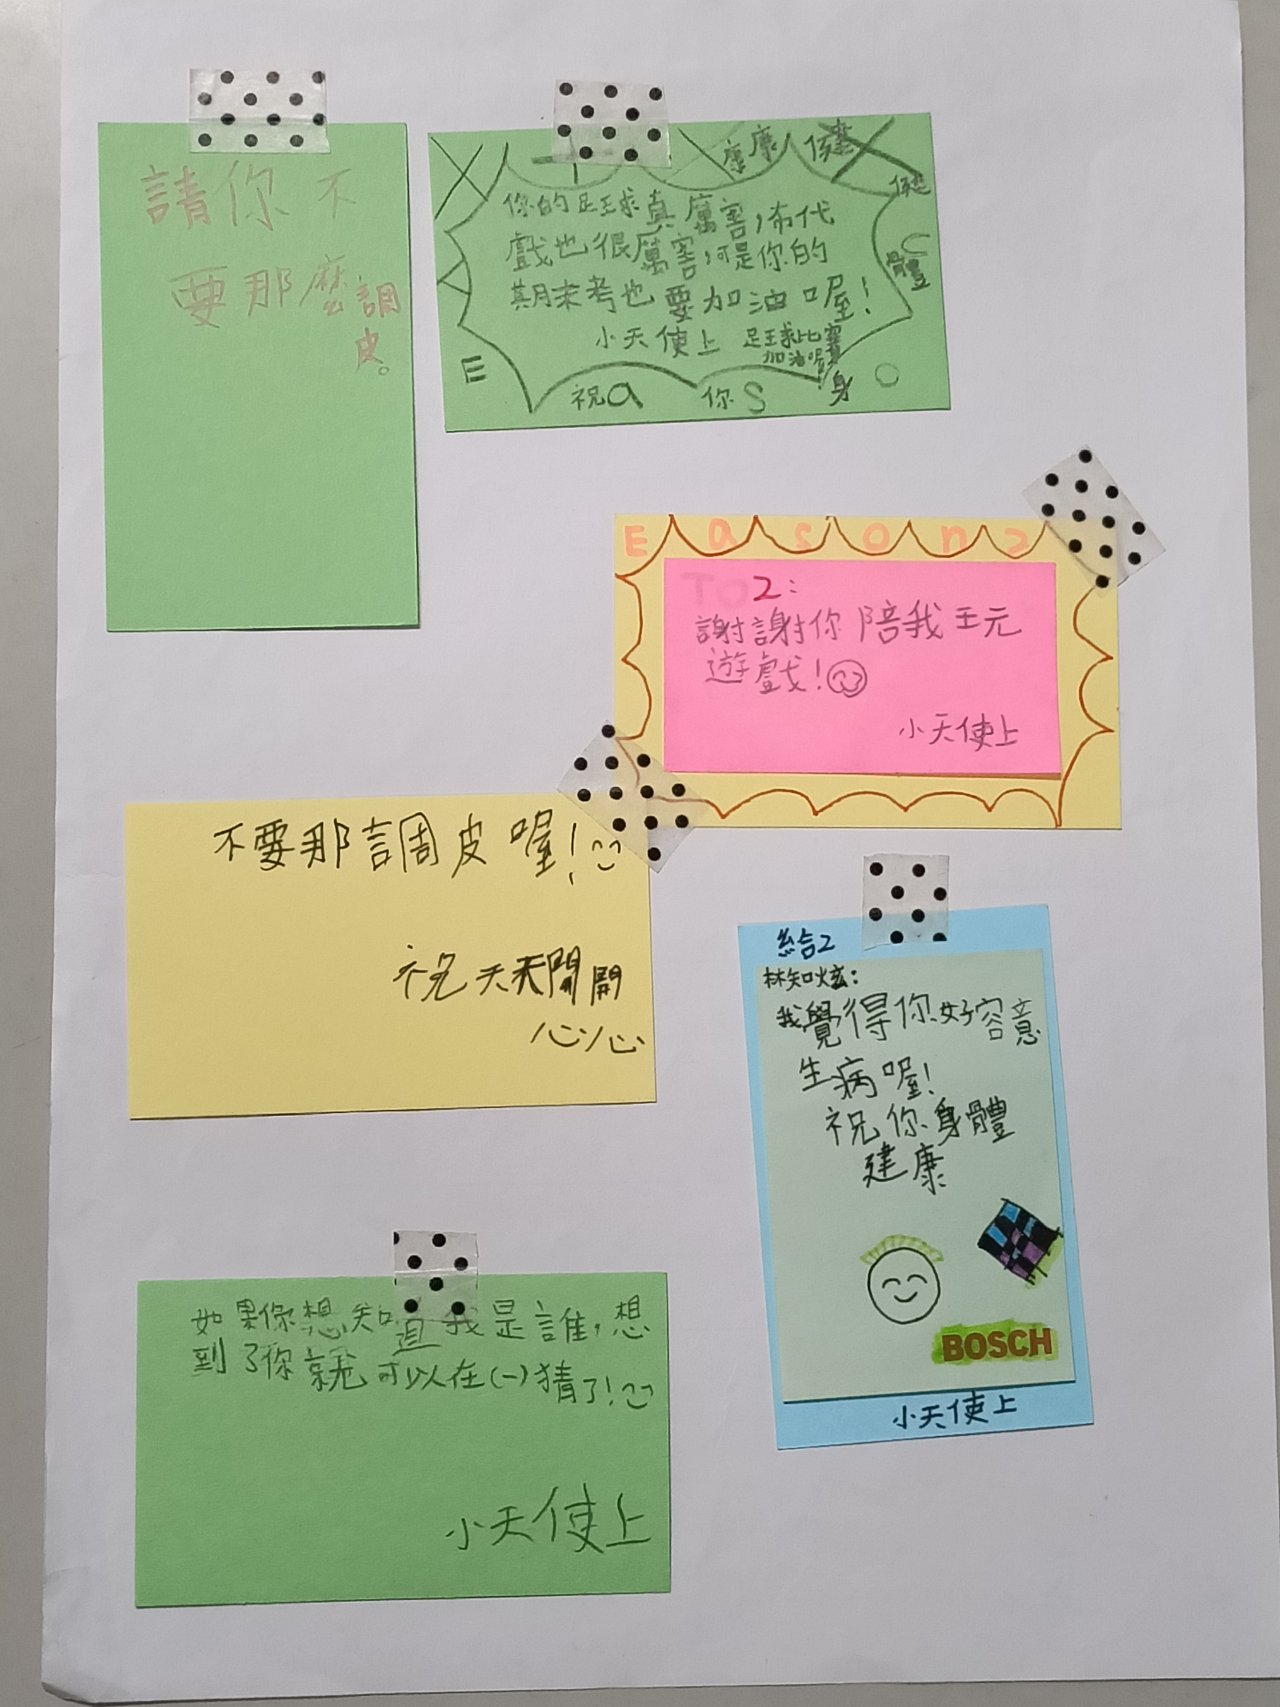 請你不
要那麼調
皮。
你的足球真厲害,布代
戲也很厲害,可是你的
期末考也要加油喔!
小天使上
足球比賽
加油喔!
祝你身體健康康
E a s O
To 2:
E a s o n 2
謝謝你陪我玩
遊戲!
小天使上
不要那調皮喔!
祝天天開開
心心
給2
林知炫:
我覺得你好容意
生病喔!
祝你身體
建康
BOSCH
小天使上
如果你想知道我是誰,想
到了你就可以在(一)猜了!
小天使上